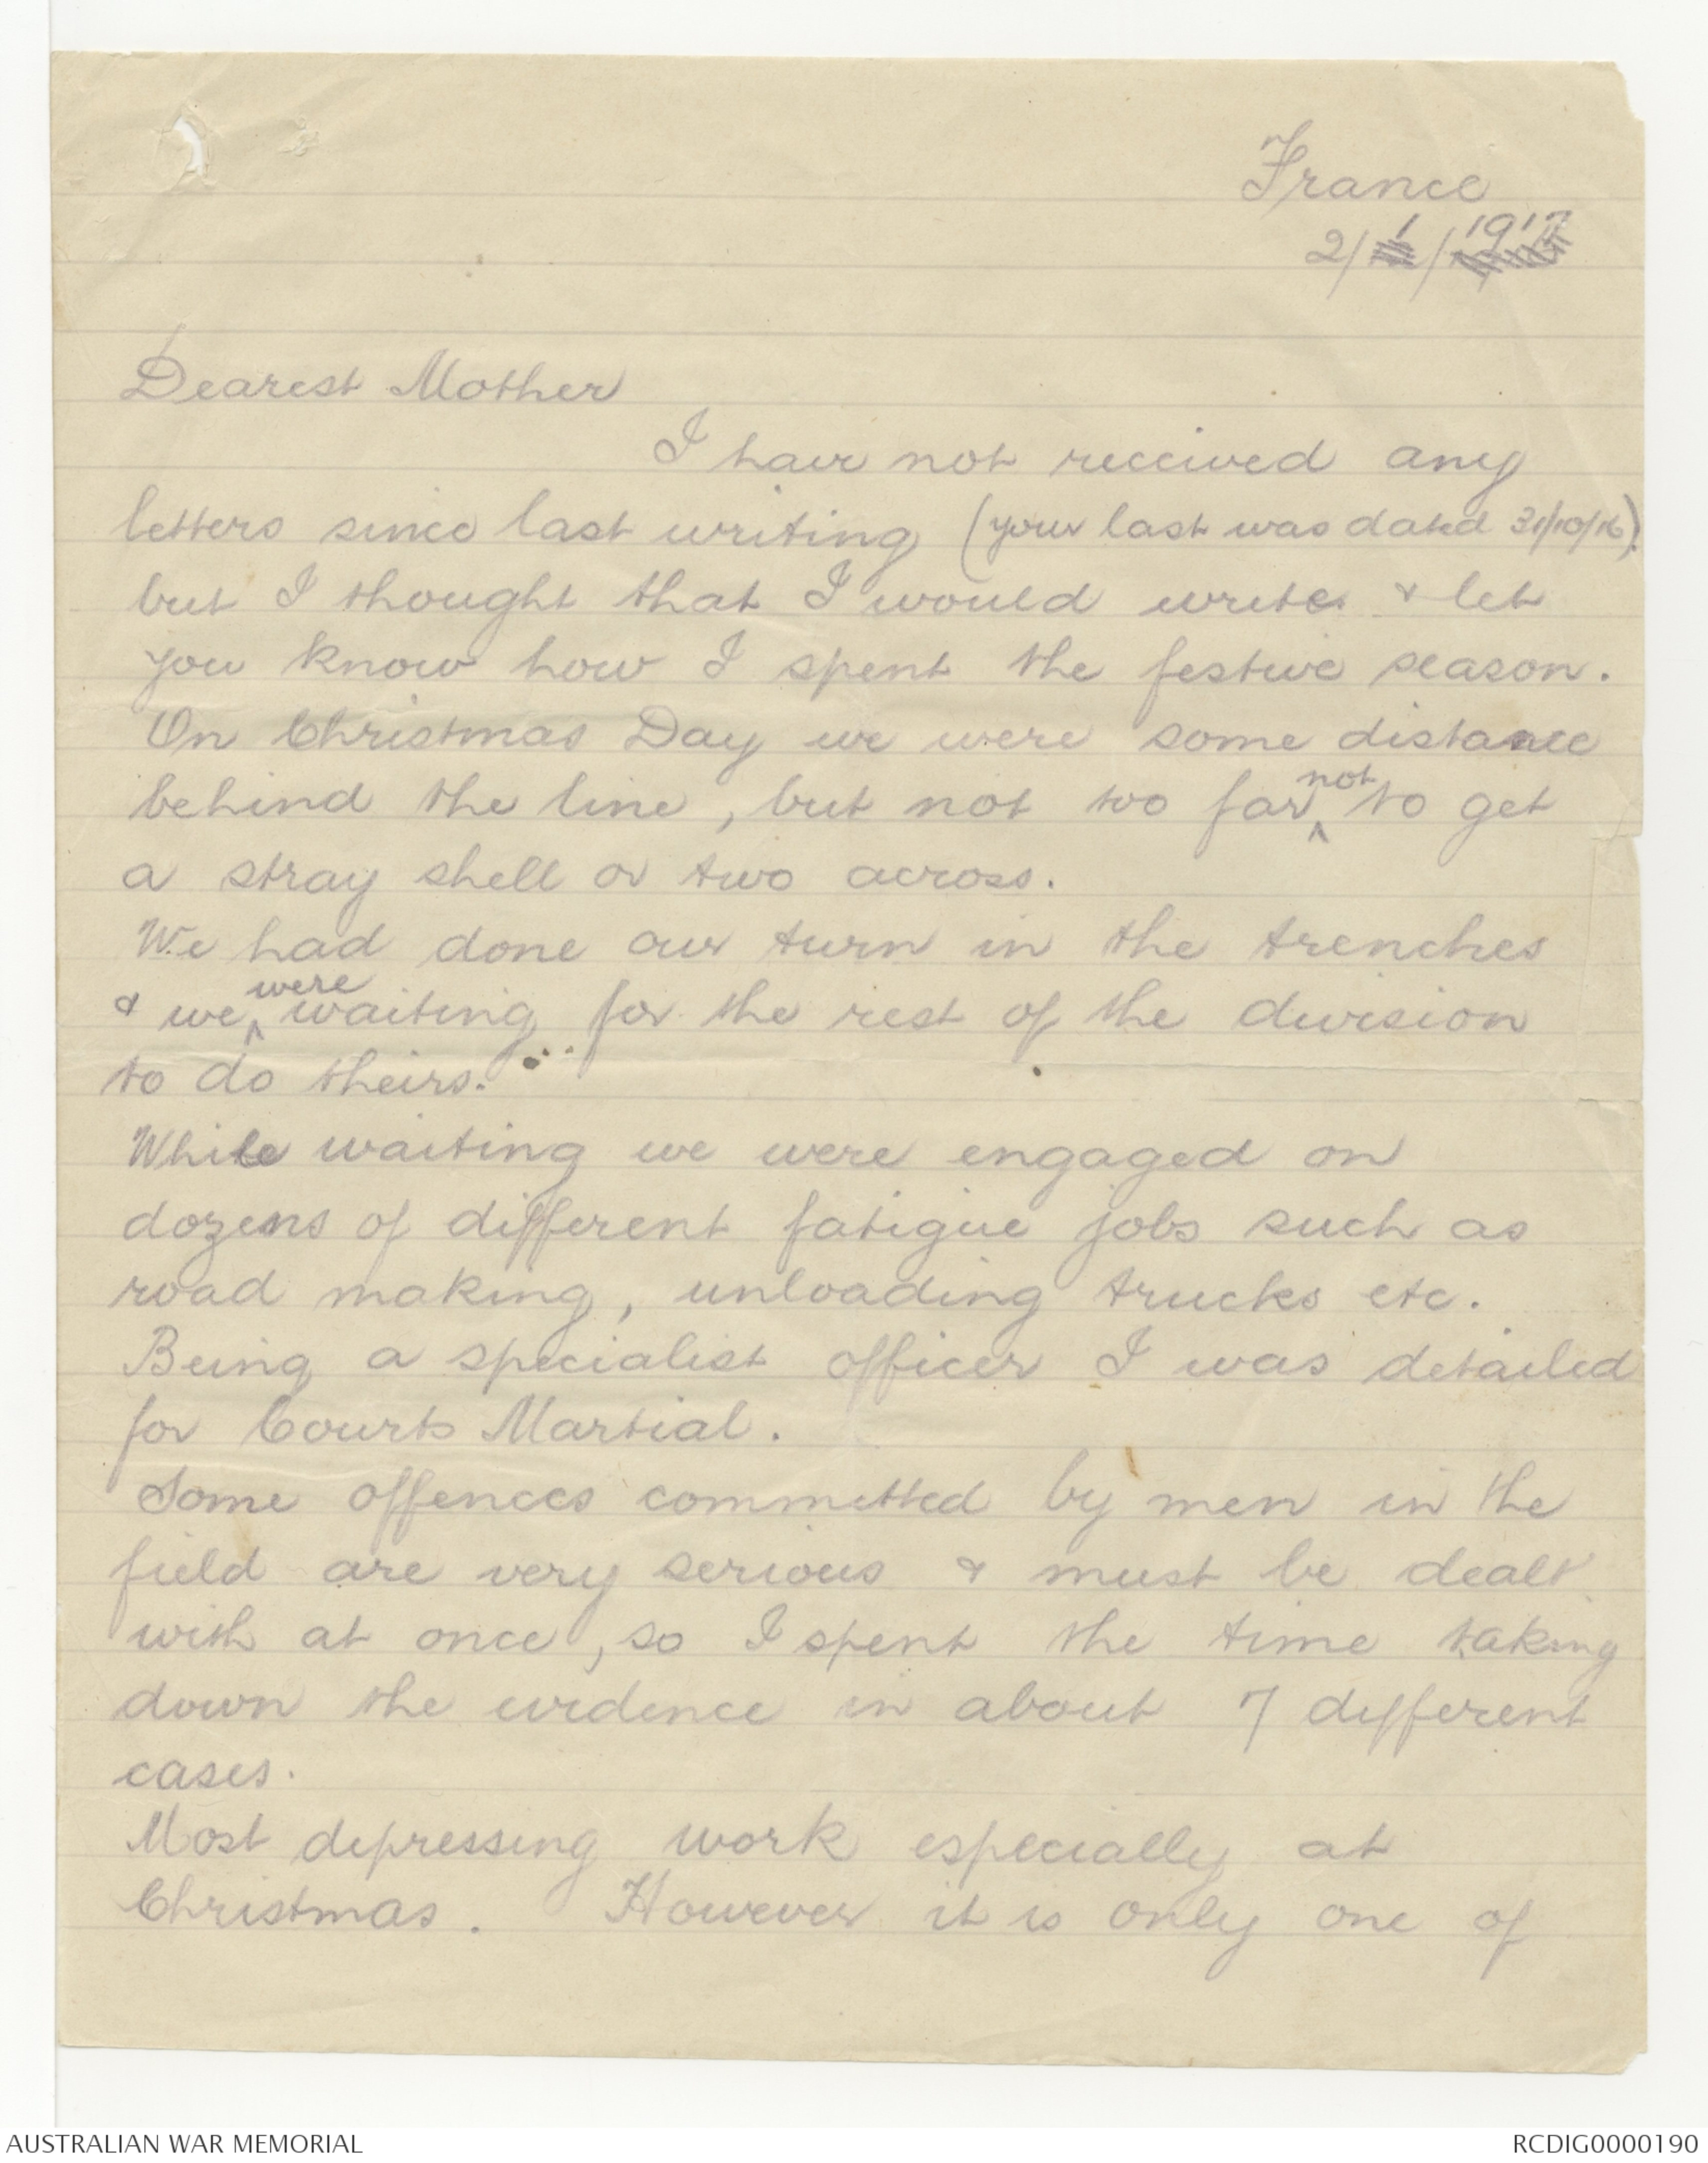 France
2/1/1917
Dearest Mother
I have not received any
letters since last writing (your last was dated 31/10/16).
but I thought that I would write & let
you know how I spent the festive season.
On Christmas Day we were some distance
behind the line, but not too far not to get
a stray shell or two across.
We had done our turn in the trenches
& we were waiting for the rest of the division
to do theirs.
While waiting we were engaged on
dozens of different fatigue jobs such as
road making, unloading trucks etc.
Being a specialist officer I was detailed
for Courts Martial.
Some offences committed by men in the
field are very serious & must be dealt
with at once, so I spent the time taking
down the evidence in about 7 different
cases.
Most depressing work especially at
Christmas. However it is only one of
AUSTRALIAN WAR MEMORIAL
RCDIG0000190